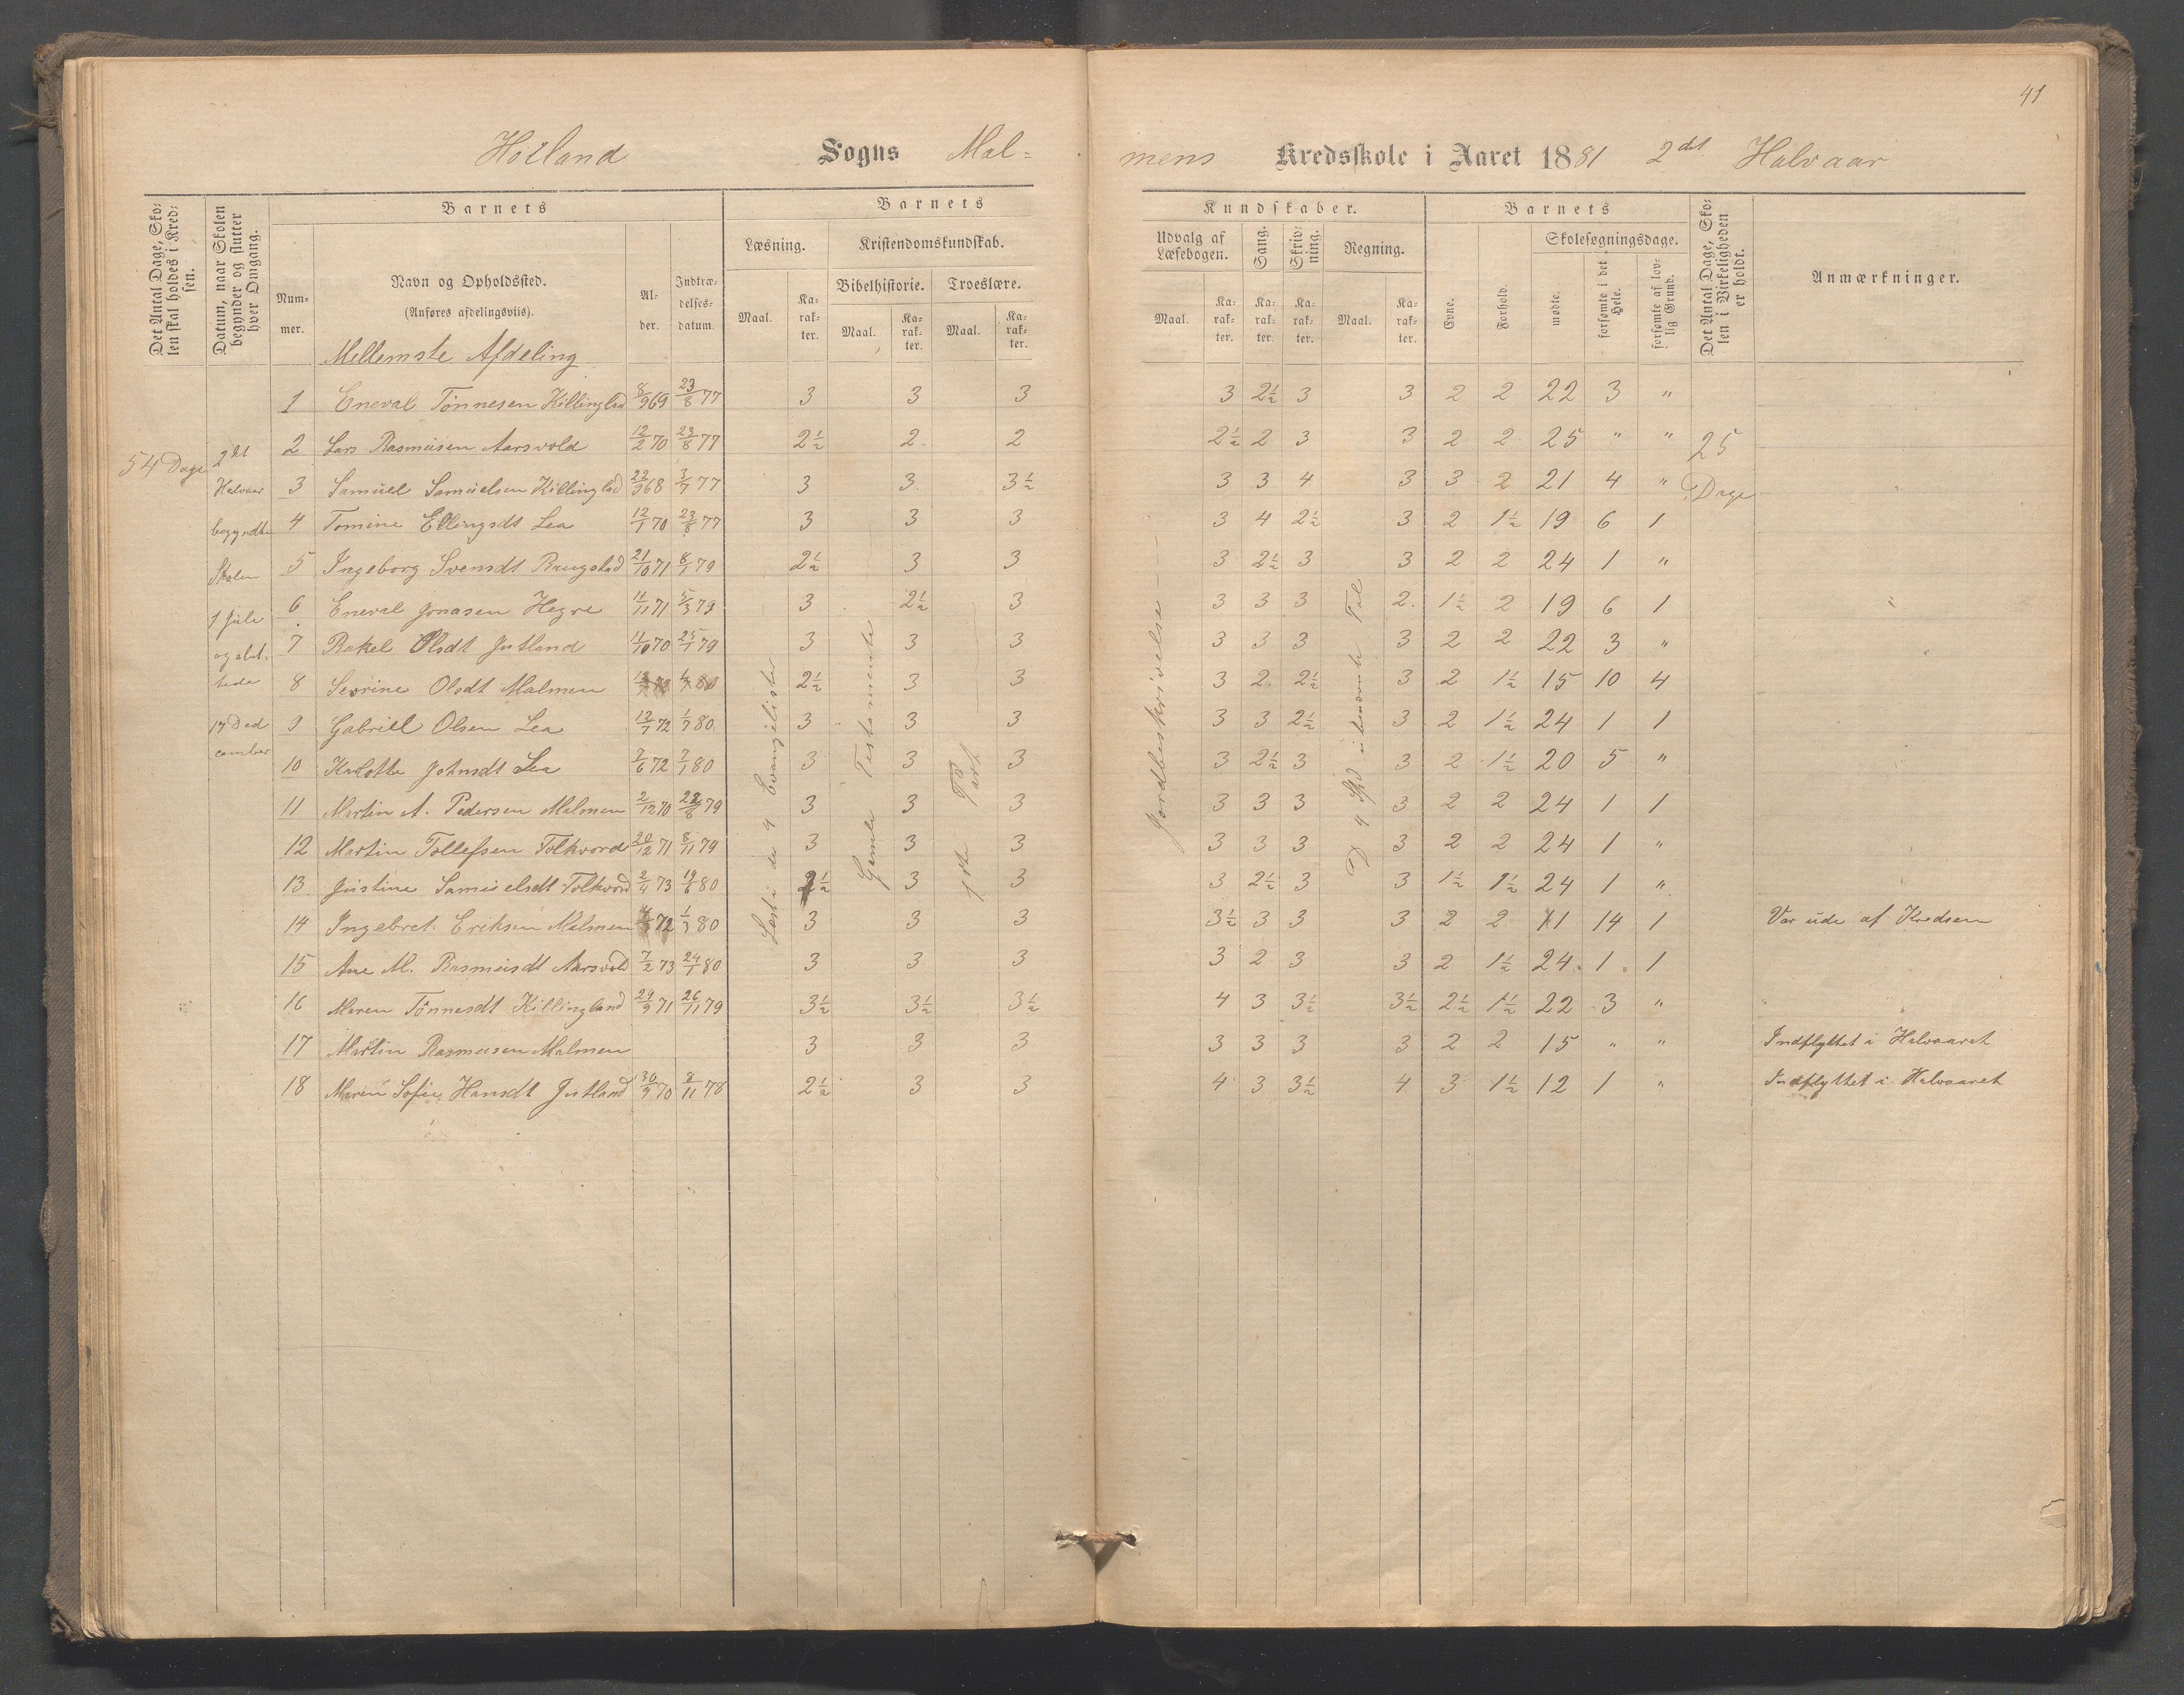 41
Høiland Sogns Mal-
mens Kredsskole i Aaret 1881 2det Halvaar
Det Antal Dage, Skolen skal holdes i Kredsen.
Datum, naar Skolen begynder og slutter hver Omgang.
Barnets
Nummer.
Navn og Opholdssted.
(Anføres afdelingsviis).
Alder.
Indtrædelsesdatum.
Barnets
Læsning.
Maal.
Karakter.
Kristendomskundskab.
Bibelhistorie.
Maal.
Karakter.
Troeslære.
Maal.
Karakter.
Kundskaber.
Udvalg af Læsebogen.
Maal.
Karakter.
Sang.
Karakter.
Skrivning.
Karakter.
Regning.
Maal.
Karakter.
Barnets
Evne.
Forhold.
Skolesøgningsdage.
mødte.
forsømte i det Hele.
forsømte af lovlig Grund.
Det Antal Dage, Skolen i Virkeligheden er holdt.
Anmærkninger.
Mellemste Afdeling
54 Dage
2det
Halvaar
begyndte
Skolen
1 Juli
og slut-
tede
17 Ded
cember
1 Eneval Tönnesen Killinglad 8/9 69 23/8 77 3 3 3 3 2½ 3 3 2 2 22 3 "
2 Lars Rasmusen Aarsvold 12/2 70 23/8 77 2½ 2 2 2½ 2 3 3 2 2 25 " " 25
3 Samuel Samuelsen Killinglad 22/9 68 3/7 77 3 3 3½ 3 3 4 3 3 2 21 4 " Dage
4 Tomine Ellingsdt Lea 12/1 70 23/8 77 3 3 3 3 4 2½ 3 2 1½ 19 6 1
5 Ingeborg Svensdt Bangstad 21/10 71 8/1 79 2½ 3 3 3 2½ 3 3 2 2 24 1 "
6 Eneval Jonasen Hegre 11/11 71 5/3 79 3 2½ 3 3 3 3 2 1½ 2 19 6 1
7 Rakel Olsdt Jutland 11/10 70 25/1 79 3 3 3 3 3 3 3 2 2 22 3 "
8 Serine Olsdt Malmen 80 2½ 3 3 3 2 2½ 3 2 1½ 15 10 4
9 Gabriel Olsen Lea 12/7 72 1/7 80 3 3 3 3 3 2½ 3 2 1½ 24 1 1
10 Karlotte Johnsdt Lea 2/6 72 7/1 80 3 3 3 3 2½ 3 3 2 1½ 20 5 "
11 Martin A. Pedersen Malmen 2/12 70 22/8 79 3 3 3 3 3 3 3 2 2 24 1 1
12 Martin Tollefsen Folkvord 20/12 71 8/11 79 3 3 3 3 3 3 3 2 2 24 1 "
13 Justine Samuelsdt Folkvord 2/4 73 19/6 80 2½ 3 3 3 2½ 3 3 1½ 1½ 24 1 "
14 Ingebret Eriksen Malmen 72 1/3 80 3 3 3 3½ 3 3 3 2 2 11 14 1 Var ude af Kredsen
15 Ane M. Rasmusdt Aarsvold 7/2 73 24/1 80 3 3 3 3 2 3 3 2 1½ 24 1 1
16 Maren Tönnesdt Killingland 29/9 71 26/11 79 3½ 3½ 3½ 4 3 3½ 3½ 2½ 1½ 22 3 "
17 Martin Rasmusen Malmen 3 3 3 3 3 3 3 2 2 15 " " Indflyttet i Halvaaret
18 Maren Sofie Hansdt Jutland 30/9 70 8/11 78 2½ 3 3 4 3 3½ 4 3 1½ 12 1 " Indflyttet i Halvaaret
Læst i de 4 Evangelister
Gamle Testamente
1ste Part
Jordbeskrivelse
4 ubenævnte Tal